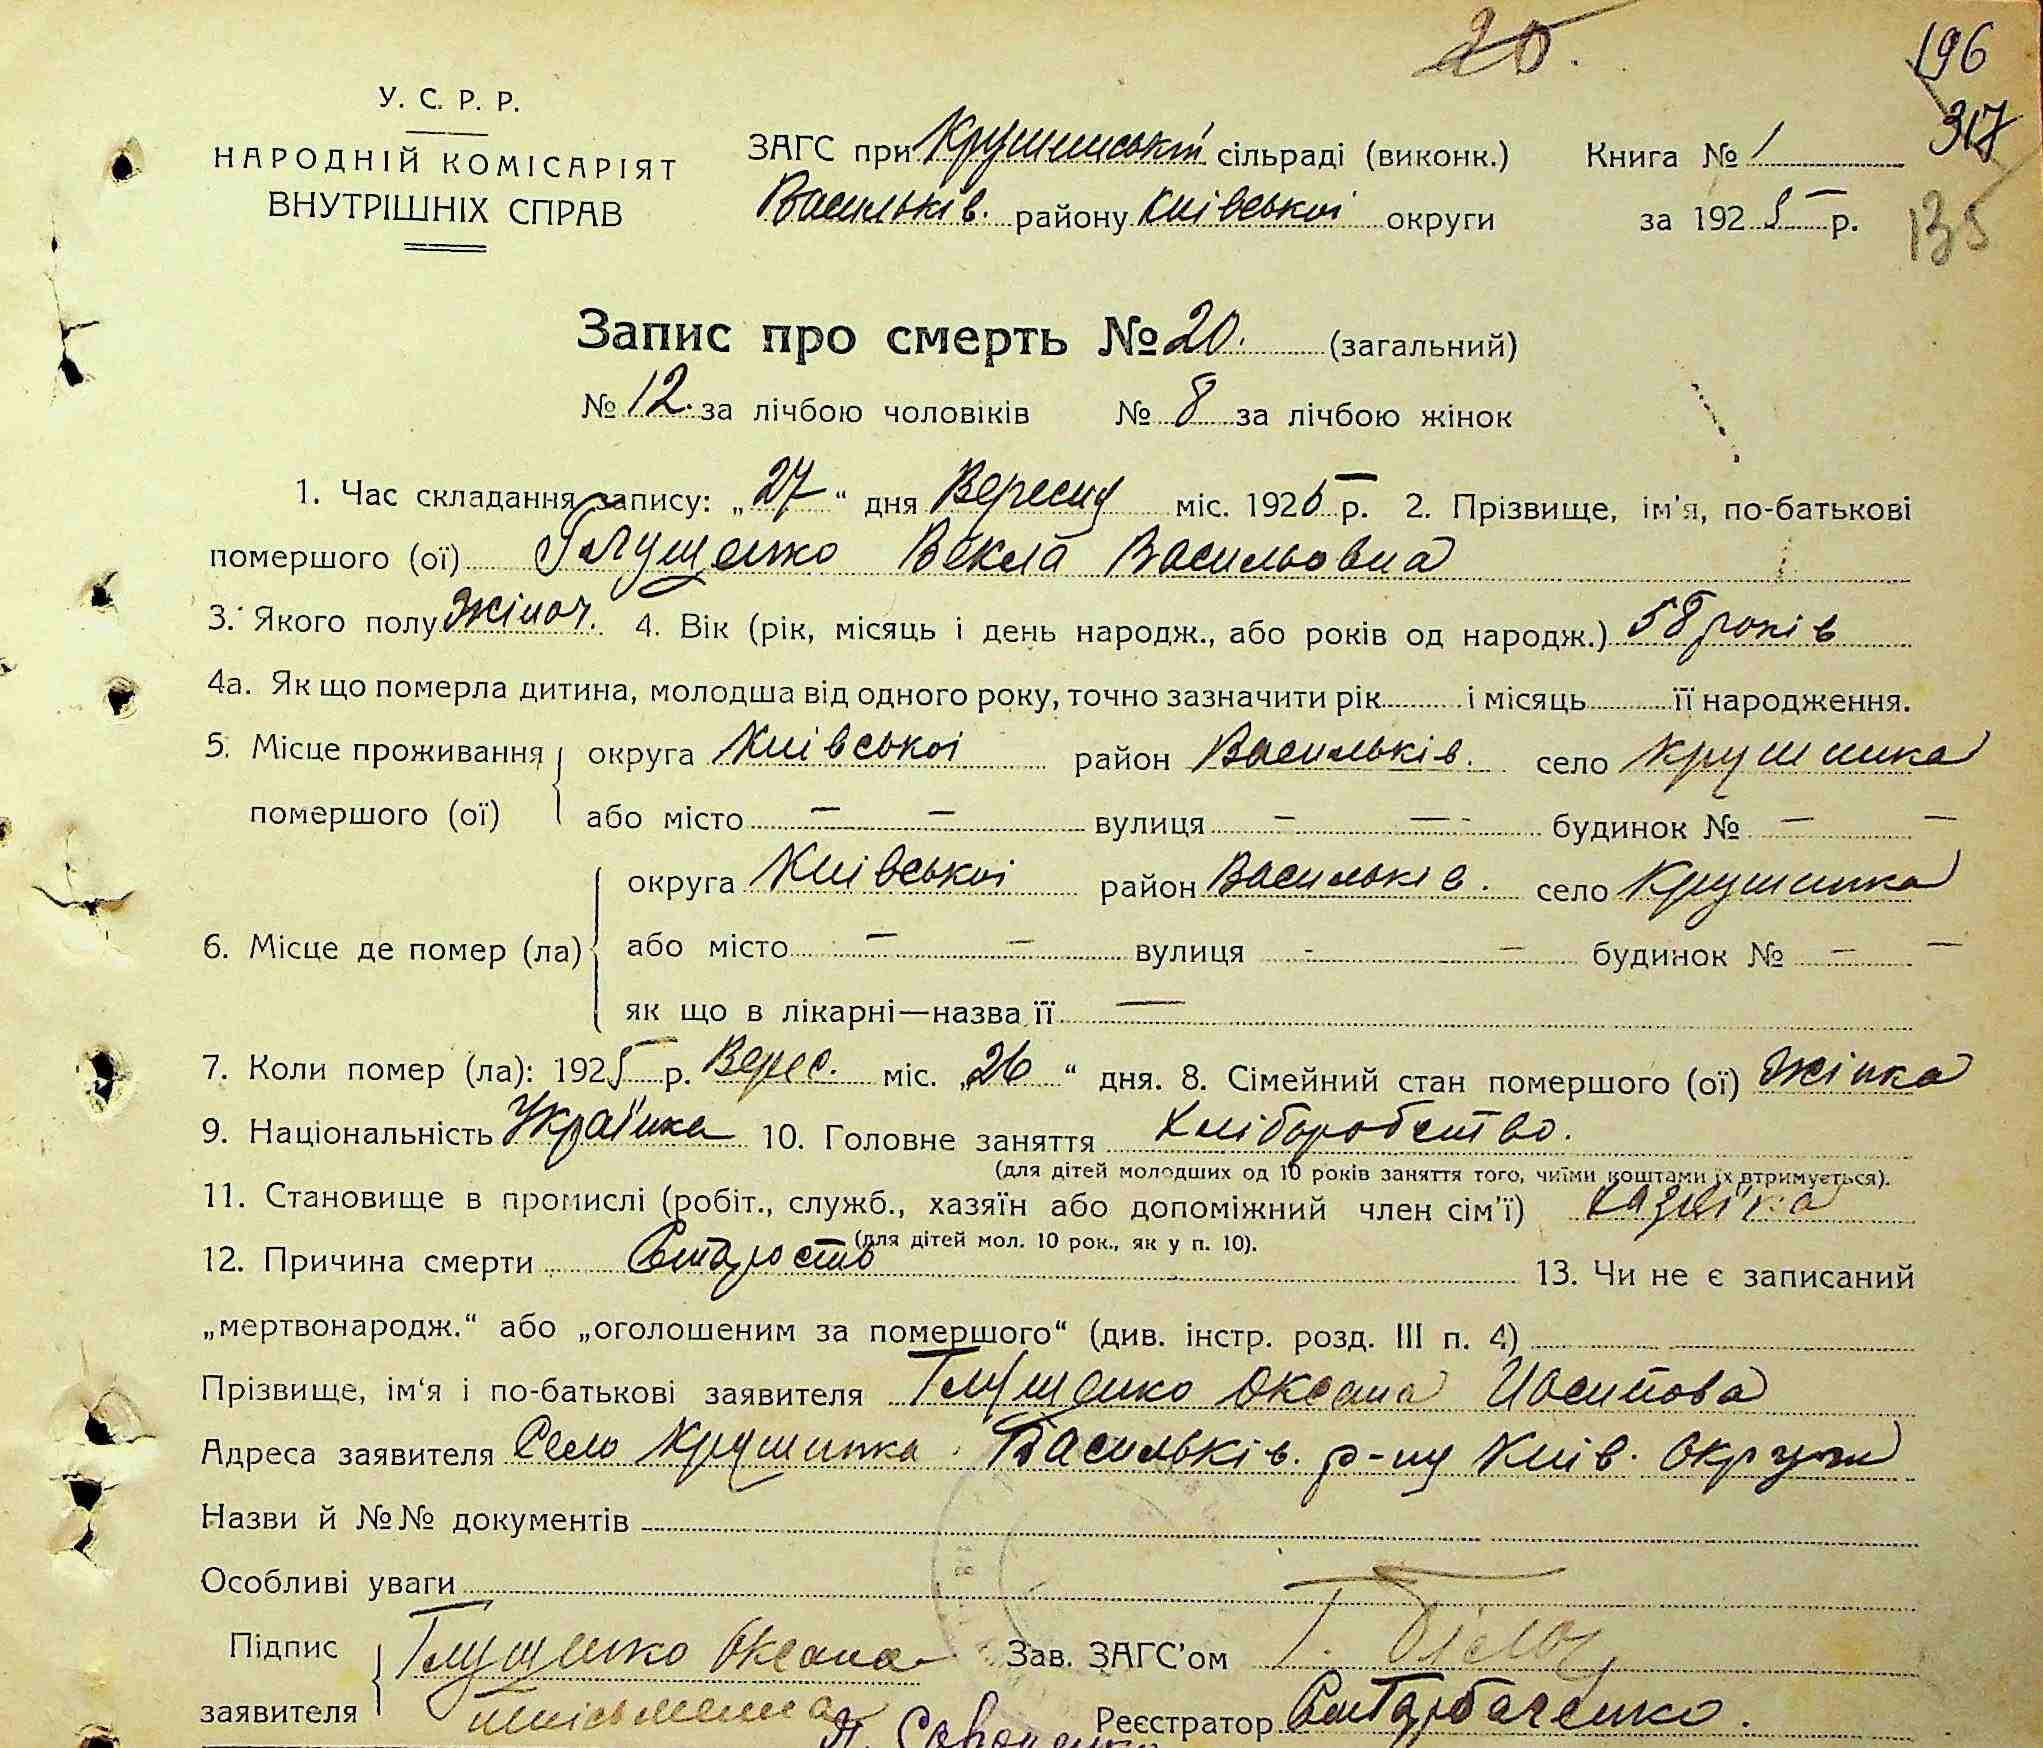 20.
196
317
135
У. С. Р. Р.
НАРОДНІЙ КОМІСАРІЯТ
ВНУТРІШНІХ СПРАВ
ЗАГС при Крушинській сільраді (виконк.) Книга № 1
Васильків. району Київської округи за 1925 р.
Запис про смерть № 20. (загальний)
№ 12. за лічбою чоловіків № 8 за лічбою жінок
1. Час складання запису: „27“ дня Вересня міс. 1925 р. 2. Прізвище, ім'я, по-батькові
помершого (ої) Глущенко Векла Васильовна
3. Якого полу Жіноч. 4. Вік (рік, місяць і день народж., або років од народж.) 58 років
4а. Як що померла дитина, молодша від одного року, точно зазначити рік і місяць її народження.
5. Місце проживання округа Київської район Васильків. село Крушинка
помершого (ої) або місто — — вулиця — — будинок № — —
округа Київської район Васильків. село Крушинка
6. Місце де помер (ла) або місто — — вулиця - — будинок № — —
як що в лікарні—назва її —
7. Коли помер (ла): 1925 р. Верес. міс. „26“ дня. 8. Сімейний стан помершого (ої) Жінка
9. Національність Українка 10. Головне заняття Хліборобство.
(для дітей молодших од 10 років заняття того, чиїми коштами їх втримується).
11. Становище в промислі (робіт., служб., хазяїн або допоміжний член сім'ї) хазяйка
(для дітей мол. 10 рок., як у п. 10).
12. Причина смерти Старость 13. Чи не є записаний
„мертвонародж.“ або „оголошеним за помершого“ (див. інстр. розд. III п. 4)
Прізвище, ім'я і по-батькові заявителя Глущенко Оксана Йосипова
Адреса заявителя Село Крушинка Васильків. р-ну Київ. округи
Назви й №№ документів
Особливі уваги
Підпис Глущенко Оксана Зав. ЗАГС'ом
заявителя письменна Реєстратор